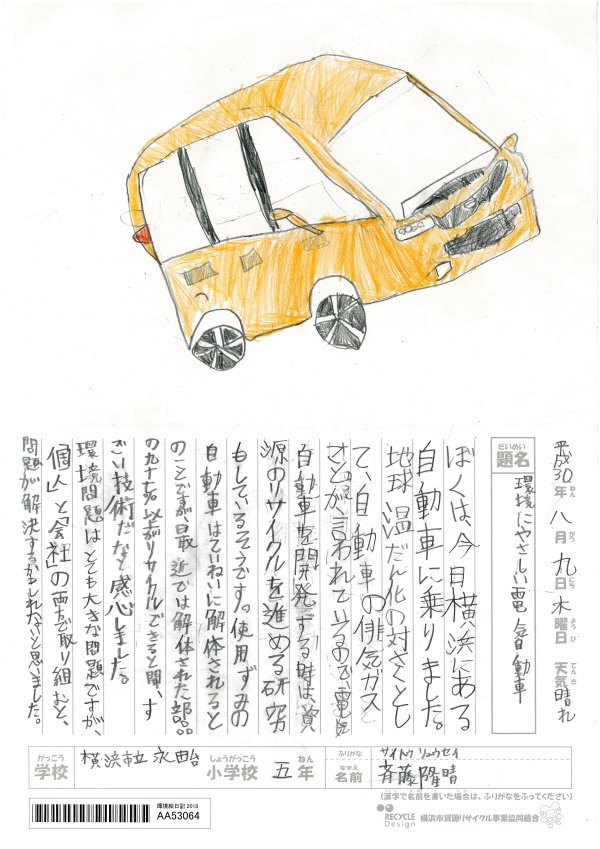 平成30年八月九日木曜日 天気晴れ
ねん がつ にち ようび てんき
だいめい
題名 環境にやさしい電気自動車
ぼくは、今日横浜にある
自動車に乗りました。
地球温だん化の対さくとし
て、自動車の俳気ガス
さとが言われているので電気
自動車を開発する時は、資
源のリサイクルを進める研究
もしているそうです。使用ずみの
自動車はていねいに解体されると
のことですが、最近では解体された部品
の九十九%以上がリサイクルできると聞、す
ごい技術だなと感心しました。
環境問題はとても大きな問題ですが、
「個人」と「会社」の両方で取り組むと、
問題が解決するかもしれないと思いました。
がっこう しょうがっこう ねん
学校 横浜市立永田台小学校 五年
ふりがな サイトウ リュウセイ
なまえ
名前 斉藤隆晴
(漢字で名前を書いた場合は、ふりがなをふってください)
環境絵日記2018
AA53064
RECYCLE Design 横浜市資源リサイクル事業協同組合